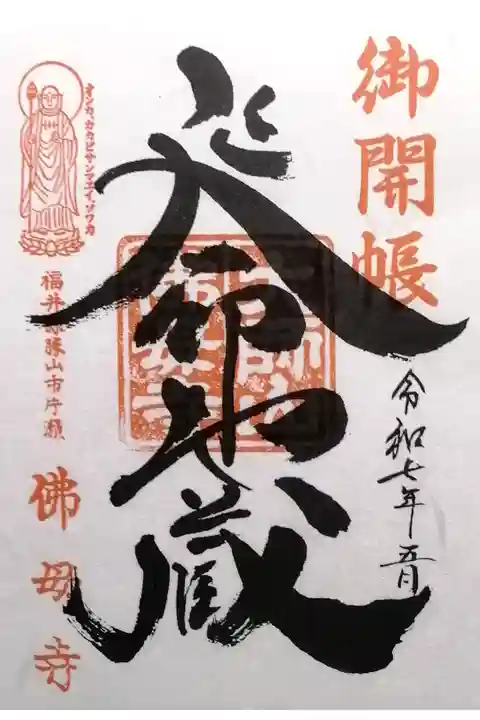 御開帳
令和七年五月
延命地蔵
オンカ、カカビサンマエイ、ソワカ
福井県勝山市片瀬
佛母寺